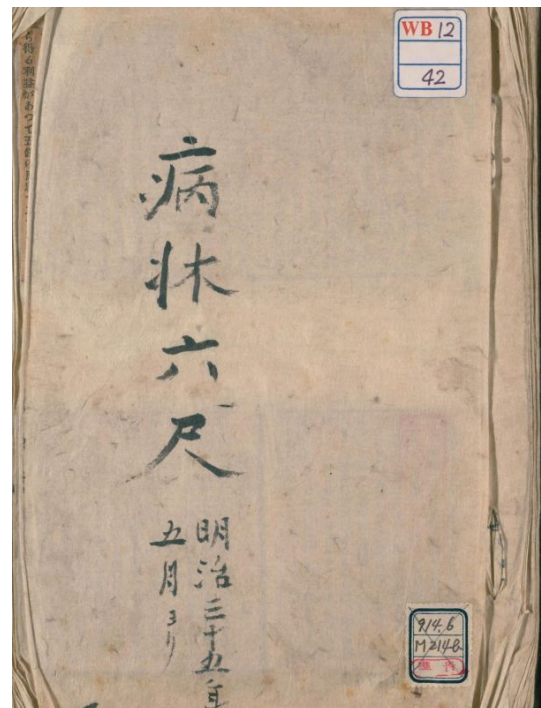 WB 12
42
病牀六尺
明治三十五年
五月ヨリ
914.6
M214b